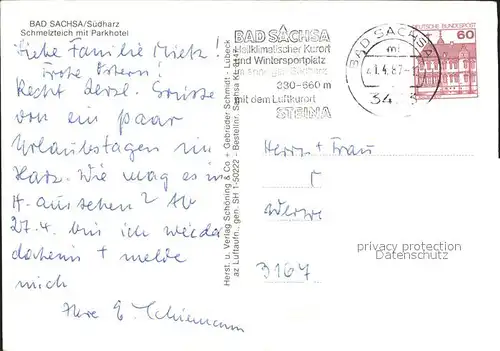 BAD SACHSA/Südharz
Schmelzteich mit Parkhotel
Liebe Familie Mietz!
Frohe Ostern!
Recht herzl. Grüsse
von ein paar
Urlaubstagen im
Harz. Wie mag es in
H. aussehen? Ab
27.4. bin ich wieder
daheim + melde
mich
Ihre E. Schiemann
Herst. u. Verlag Schöning & Co + Gebrüder Schmidt - Lübeck
az Luftaufn., gen. SH 1-50222 - Bestellnr. Samsa
BAD SACHSA
Heilklimatischer Kurort
und Wintersportplatz
330-660 m
mit dem Luftkurort
STEINA
BAD SACHSA
mf
.4.87-
DEUTSCHE BUNDESPOST
60
Herrn + Frau
3167
privacy protection
Datenschutz